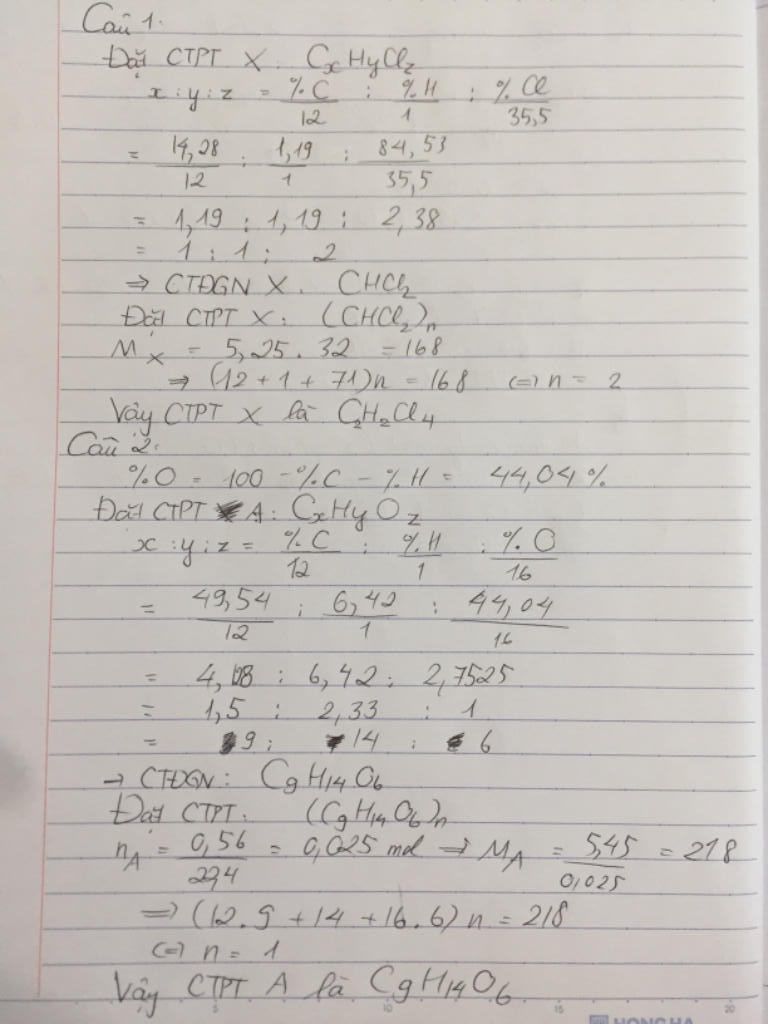 Câu 1.
Đặt CTPT X. CxHyClz
x : y : z = %C/12 : %H/1 : %Cl/35,5
= 14,28/12 : 1,19/1 : 84,53/35,5
= 1,19 : 1,19 : 2,38
= 1 : 1 : 2
⇒ CTĐGN X. CHCl2
Đặt CTPT X: (CHCl2)n
MX = 5,25.32 = 168
⇒ (12 + 1 + 71)n = 168 (=) n = 2
Vậy CTPT X là C2H2Cl4
Câu 2.
%O = 100 - %C - %H = 44,04%
Đặt CTPT A: CxHyOz
x : y : z = %C/12 : %H/1 : %O/16
= 49,54/12 : 6,42/1 : 44,04/16
= 4,128 : 6,42 : 2,7525
= 1,5 : 2,33 : 1
= 9 : 14 : 6
→ CTĐGN: C9H14O6
Đặt CTPT: (C9H14O6)n
nA = 0,56/22,4 = 0,025 mol ⇒ MA = 5,45/0,025 = 218
⇒ (12.9 + 14 + 16.6)n = 218
(=) n = 1
Vậy CTPT A là C9H14O6
5 10 15 20
HONG HA